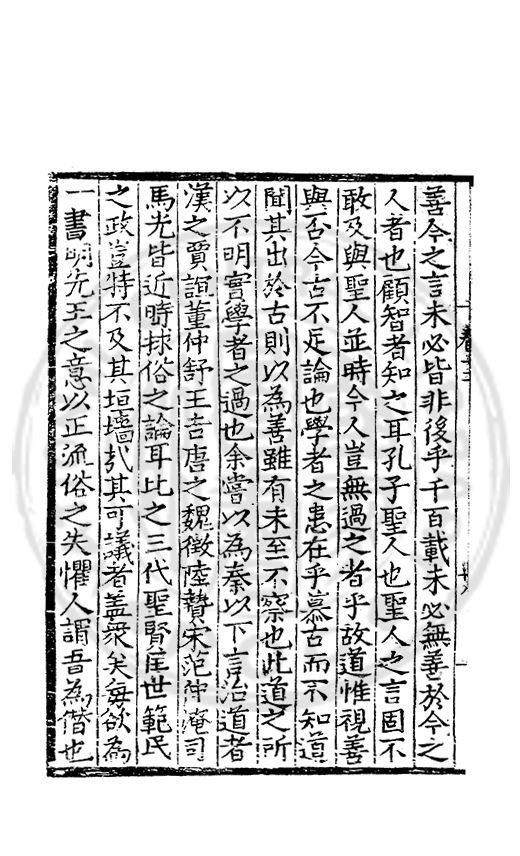 善今之言未必皆非後乎千百載未必無善於今之
人者也顧智者知之耳孔子聖人也聖人之言固不
敢及與聖人並時今人豈無過之者乎故道惟視善
與否今古不足論也學者之患在乎慕古而不知道
聞其出於古則以為善雖有未至不察也此道之所
以不明實學者之過也余嘗以為秦以下言治道者
漢之賈誼董仲舒王吉唐之魏徵陸贄宋范仲淹司
馬光皆近時捄俗之論耳比之三代聖賢匡世範民
之政豈特不及其垣墻㢤其可議者蓋衆矣每欲為
一書明先王之意以正流俗之失懼人謂吾為僭也